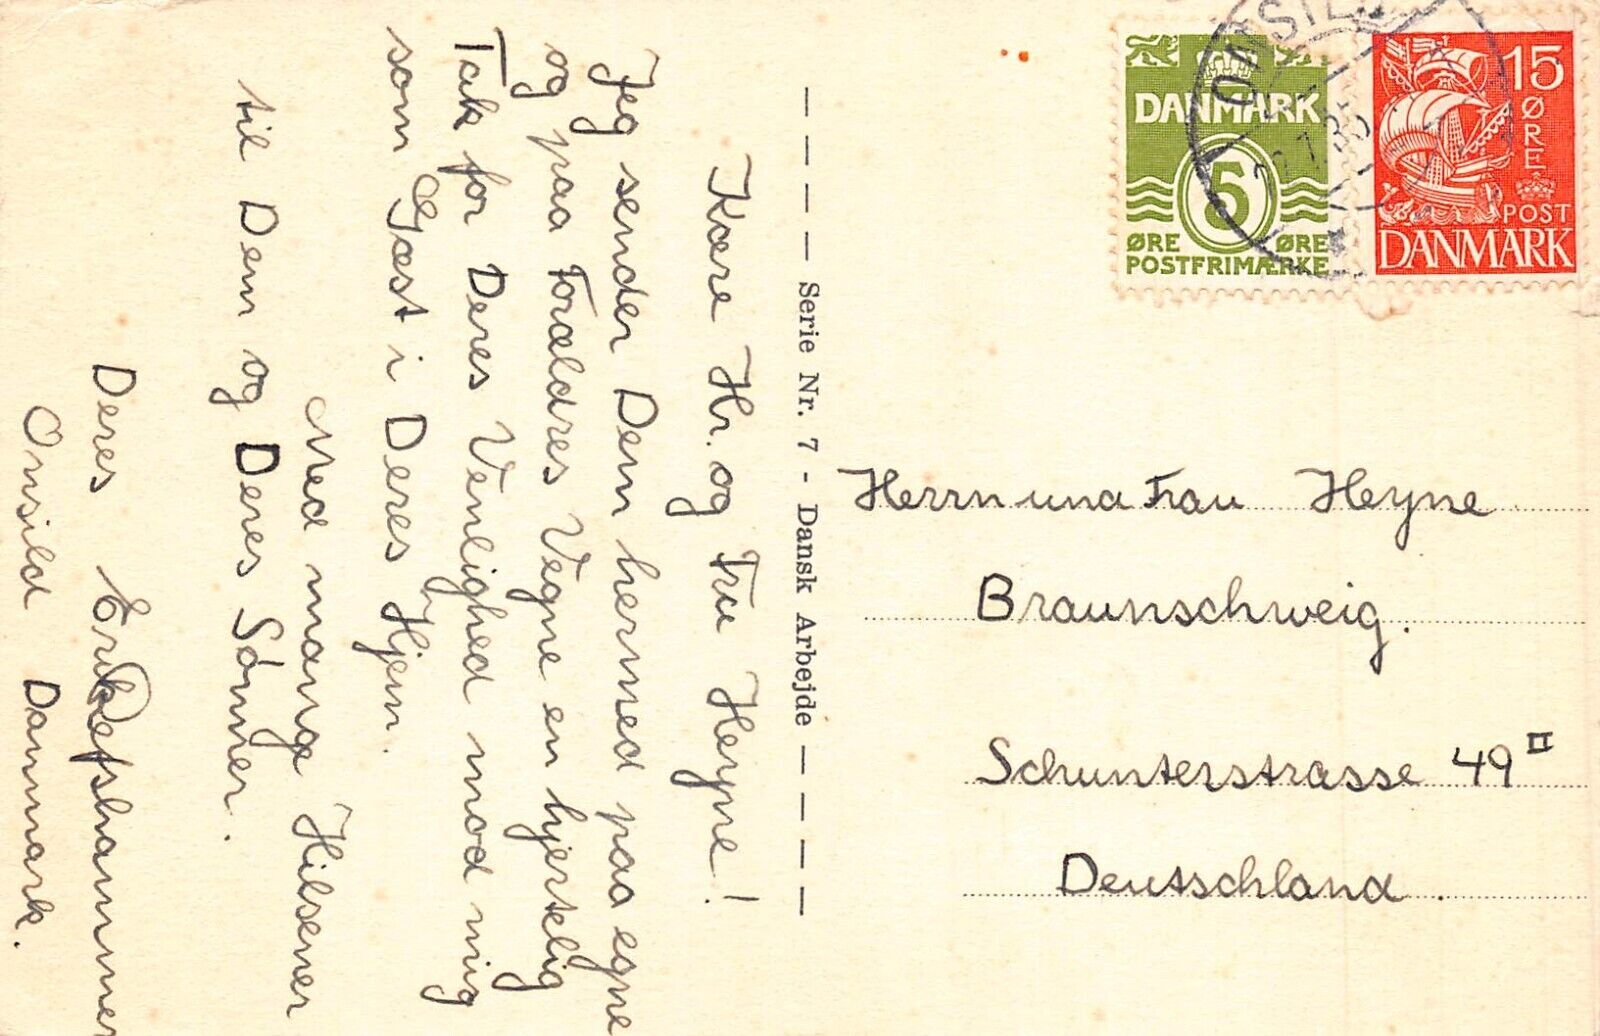 Kære Hr. og Fru Heyne!
Jeg sender Dem hermed paa egne
og paa Forældres Vegne en hjertelig
Tak for Deres Venlighed mod mig
som Gæst i Deres Hjem.
Med mange Hilsener
til Dem og Deres Sønner.
Deres Erik
Onsild Danmark.
Serie Nr. 7 - Dansk Arbejde
DANMARK
5
ØRE ØRE
POSTFRIMÆRKE
15
ØRE
POST
DANMARK
Herrn und Frau Heyne
Braunschweig.
Schunterstrasse 49 II
Deutschland.